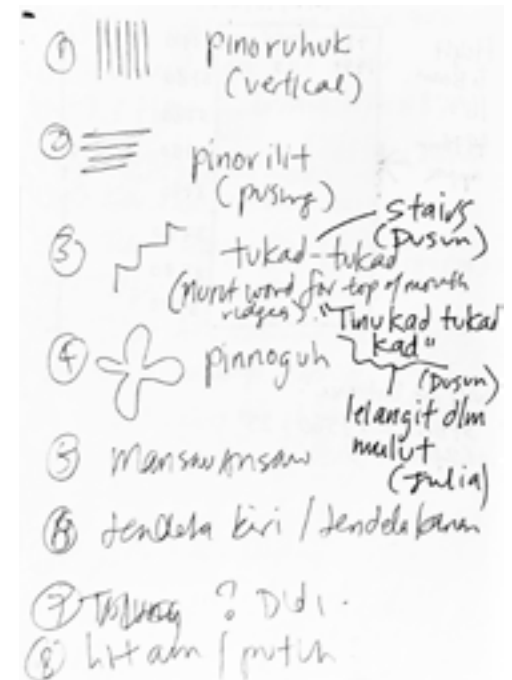 ① pinoruhuk
(vertical)
② pinorilit
(pusing)
③ tukad-tukad
stairs
(Dusun)
(Murut word for top of mouth
ridges). "Tinukad tukad
kad"
(Dusun)
lelangit dlm
mulut
(Julia)
④ pinnoguh
⑤ mansau ansau
⑥ jendela kiri / jendela kanan
⑦ ? Didi.
⑧ hitam / putih